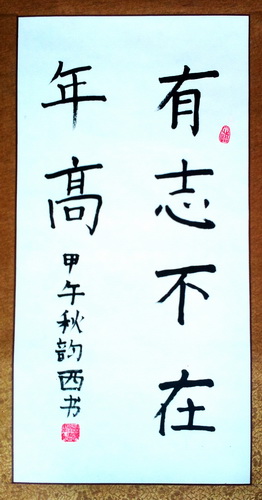 有志不在
年高
甲午秋韵西书